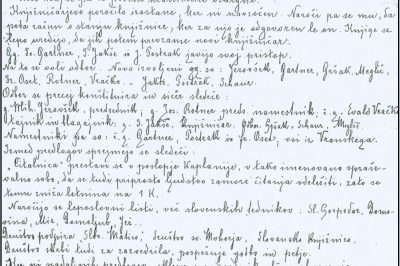 Knjižničarjevo poročilo izostane, ker ni navzočen. Naroči pa se mu, da
poda račun o stanju knjižnice, ker za njo je odgovoren le on. Knjige se
lepo uredijo, da jih potem prevzame novi knjižničar.
Gg. Fr. Gartner, J. Jakše in J. Postrak javijo svoj pristop.
Na to se voli odbor. Novo izvoljeni gg. so: Jerovšek, Gartner, Gričak, Meglič,
Fr. Oset, Rotner, Vračko, Jakše, Postrak, Schaur
Odbor se precej konštituira in sicer sledeče:
g. Mih. Jerovšek, predsednik; g. Jos. Rotner preds. namestnik; č. g. Evald Vračko
tajnik in blagajnik; g. J. Jakše, knjižničar. Odbor. Meglič
Namestniki pa so: č. g. Gartner, Postrak in Fr. Oset, vsi iz Vranskega.
Izmed predlogov sprejmejo se sledeči:
"Čitalnica" prestavi se v poslopje Kaplanije, v tako imenovano
valno sobo, da se tudi priprosto ljudstvo zamore čitanja vdeležiti, zato se
temu zniža letnina na 1 K.
Naročijo se leposlovni listi, več slovenskih tednikov: Sl. Gospodar, Domo-
vina, Mir, Domoljub,
Društvo podpira Slov. Matico, društvo sv. Mohorja, Slovansko knjižnico.
Društvo skrbi tudi za razvedrila, pospešuje godbo in petje.